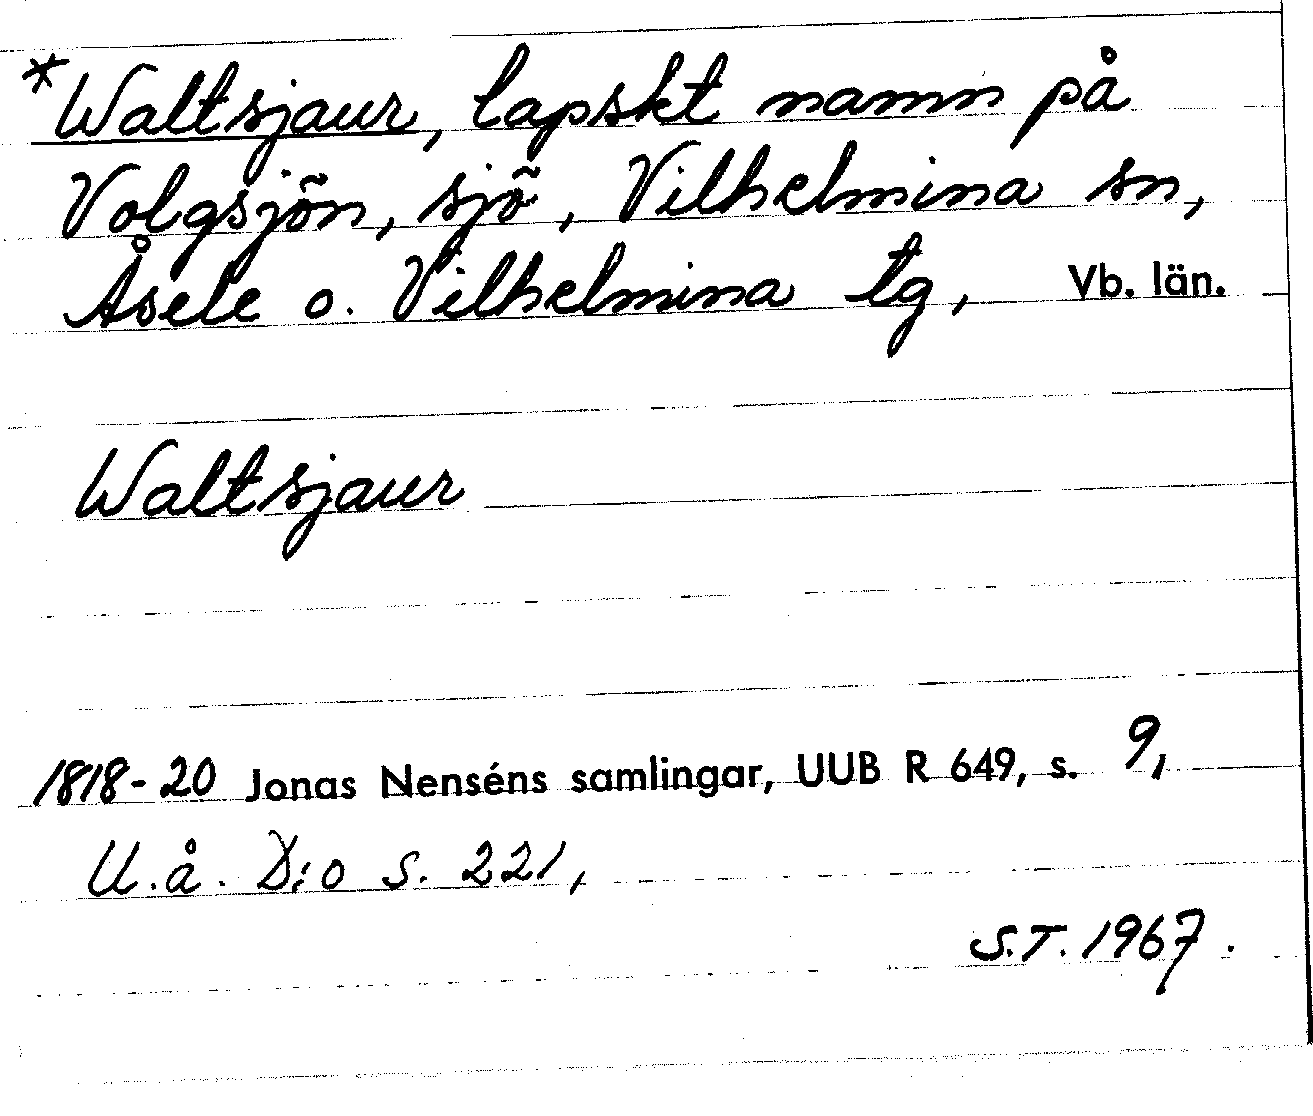 *Waltsjaur, lapskt namn på
Volgsjön, sjö, Vilhelmina sn,
Åsele o. Vilhelmina tg, Vb. län.
Waltsjaur
1818-20 Jonas Nenséns samlingar, UUB R 649, s. 9,
U.å. D:o s. 221,
S.T. 1967.